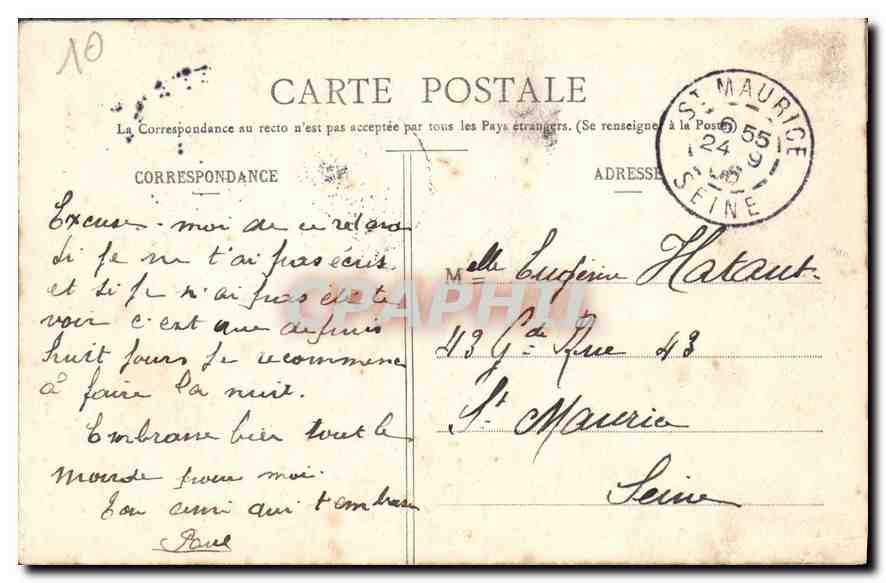 10
CARTE POSTALE
La Correspondance au recto n'est pas acceptée par tous les Pays étrangers. (Se renseigner à la Poste)
CORRESPONDANCE
ADRESSE
ST MAURICE
6 55
24 9
SEINE
Excuse-moi de ce retard
Si je ne t'ai pas écris
et si je n'ai pas été te
voir c'est que depuis
huit jours je recommence
à faire la nuit.
Embrasse bien tout le
monde pour moi.
Ton ami qui t'embrasse
Paul
Melle Eugénie Hataut
43 Gde Rue 43
St Maurice
Seine
CPAPHIL